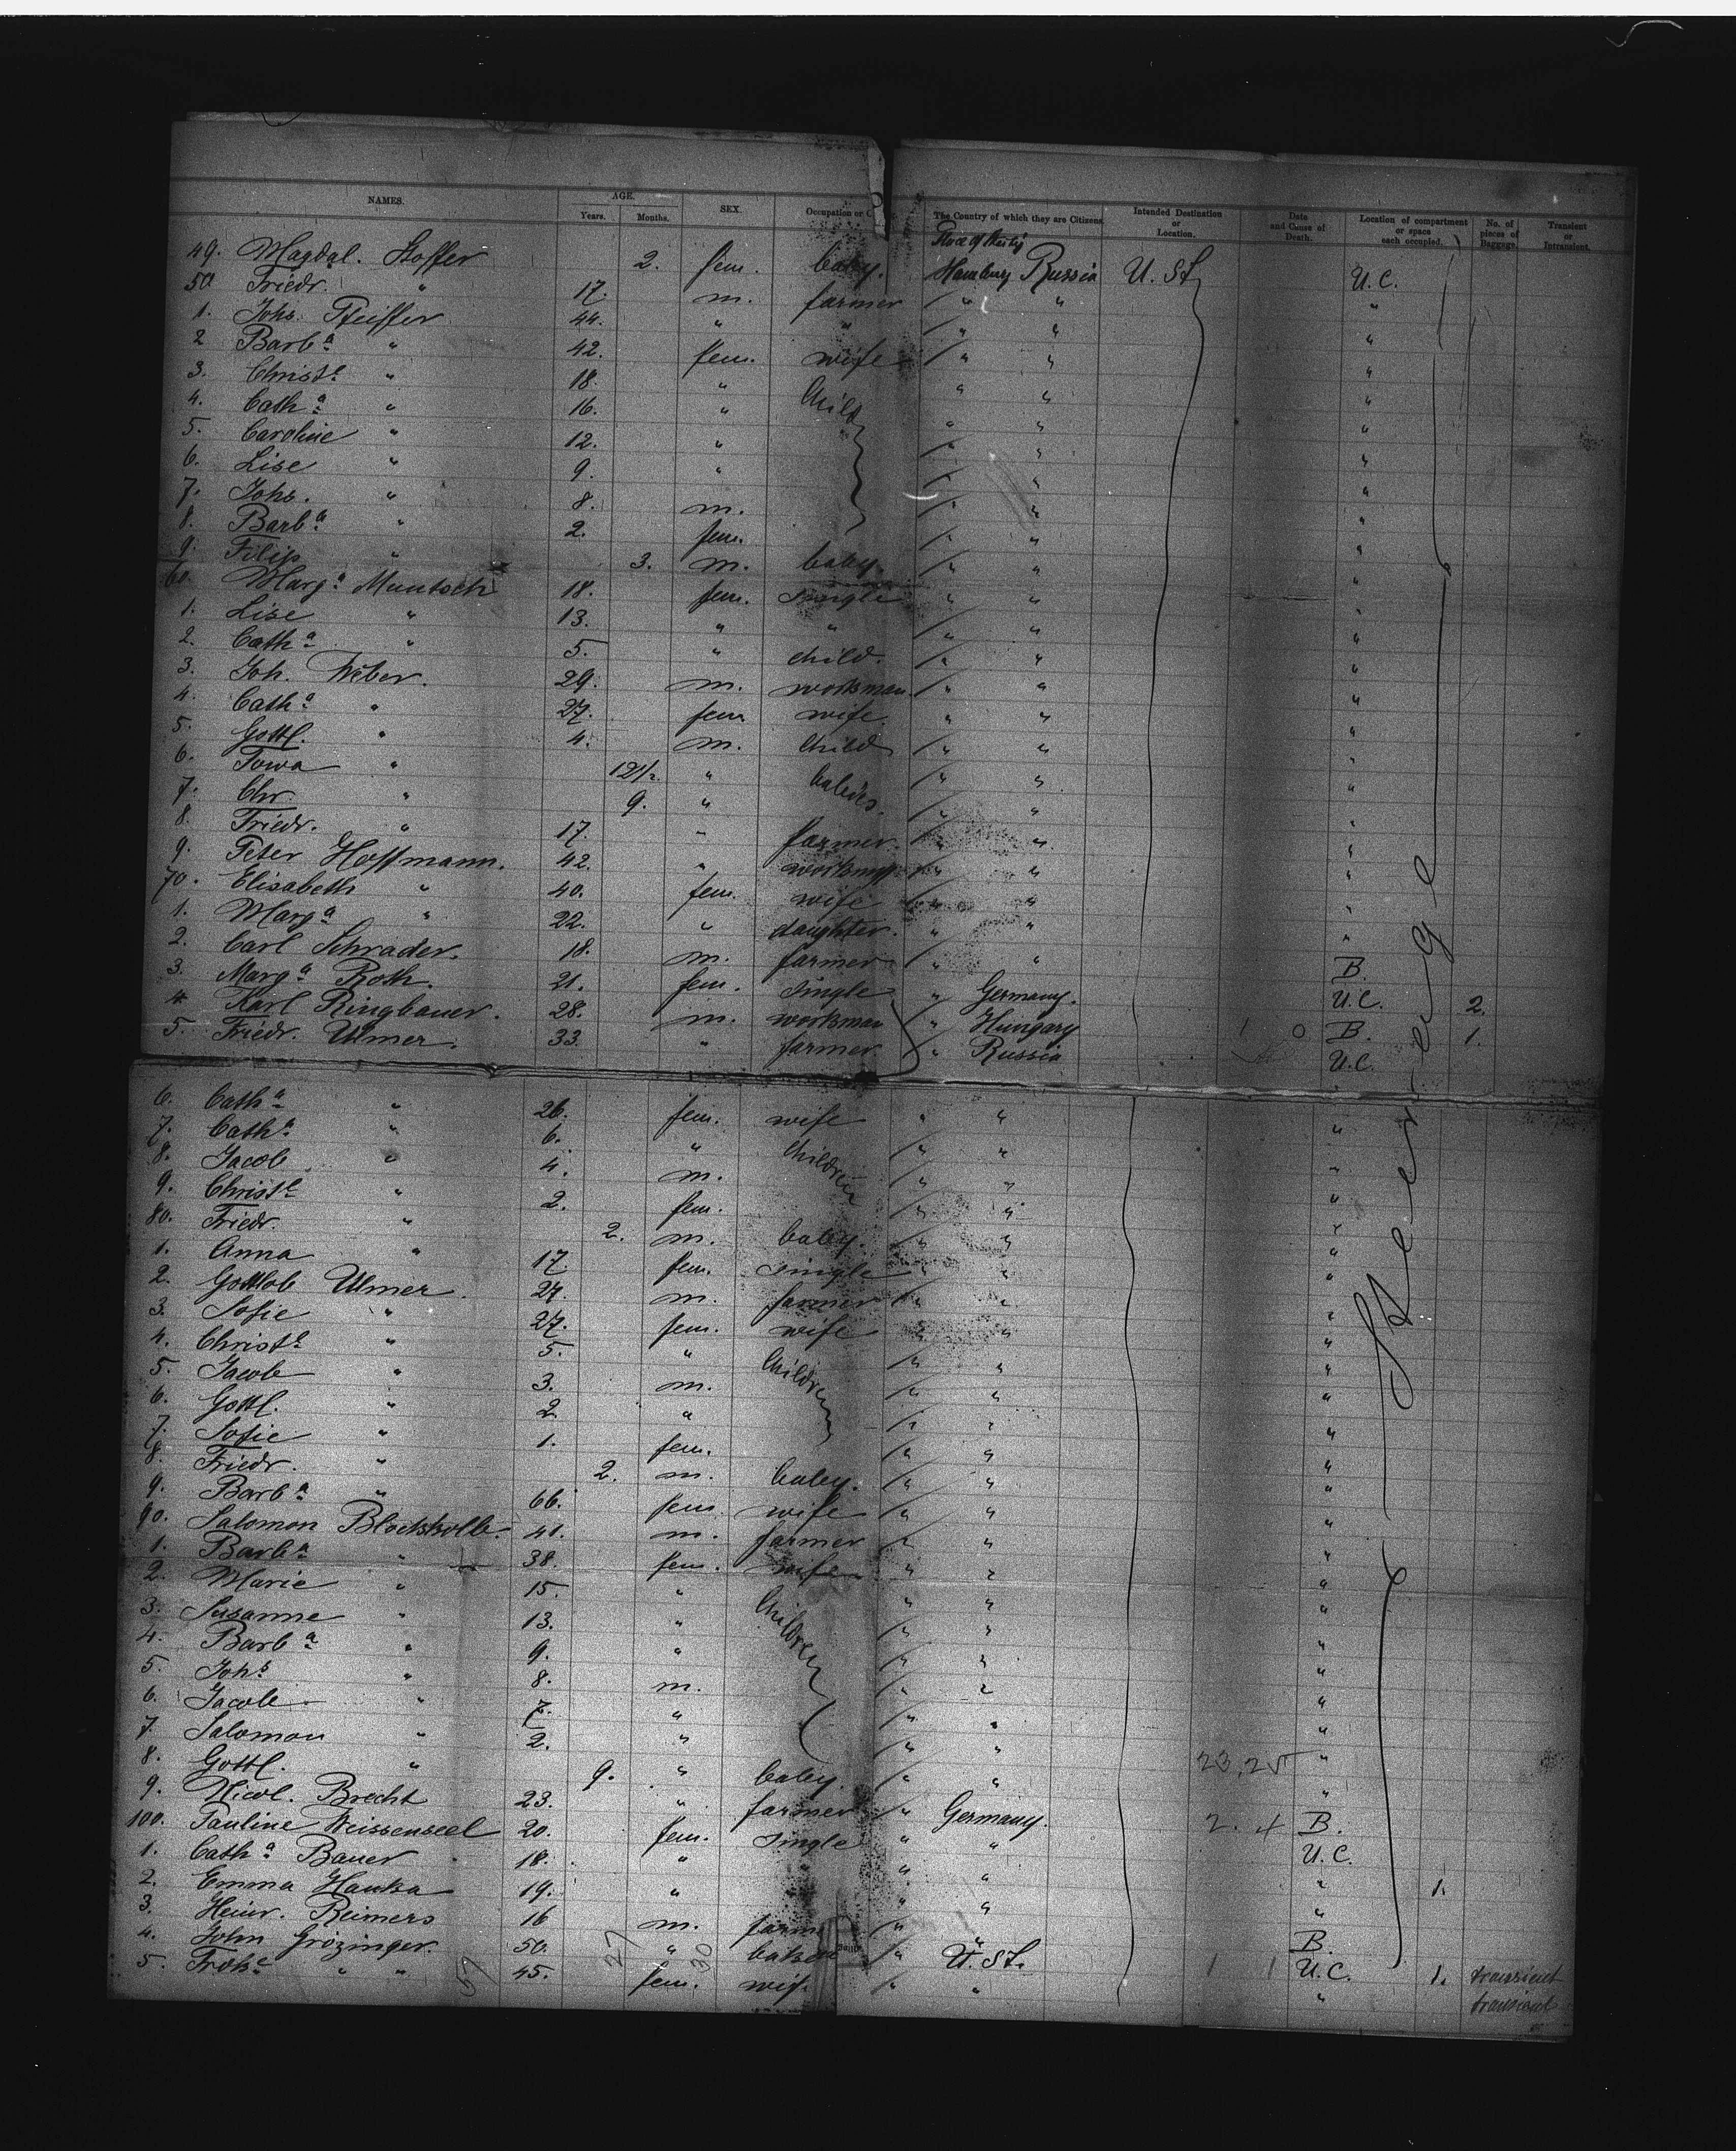 NAMES. AGE. SEX. Occupation or The Country of which they are Citizens. Intended Destination or Location. Date and Cause of Death. Location of compartment or space each occupied. No. of pieces of Baggage. Transient or Intransient.
Years. Months.
49. Magdal. Stoffer 2. fem. baby. Hamburg Russia U. St. U.C.
50 Friedr. " 17. m. farmer " " "
1. Johs. Pfeiffer 44. " " " " "
2 Barba " 42. fem. wife " " "
3. Christe " 18. " Child " " "
4. Catha " 16. " " " "
5. Caroline " 12. " " " "
6. Lise " 9. " " " "
7. Johs. " 8. m. " " "
8. Barba " 2. fem. " " "
9. Filip " 3. m. baby. " " "
60. Marga Muntsch 18. fem. single " " "
1. Lise " 13. " " " " "
2. Catha " 5. " child. " " "
3. Joh. Weber. 29. m. workman. " " "
4. Catha " 27. fem. wife. " " "
5. Gottl. " 4. m. Child " " "
6. Towa " 12 1/2. " babies. " " "
7. Chr. " 9. " " " "
8. Friedr. " 17. " farmer. " " "
9. Peter Hoffmann. 42. " workman " " "
70. Elisabeth " 40. fem. wife " " "
1. Marga " 22. " daughter. " " "
2. Carl Schrader. 18. m. farmer " " B.
3. Marga Roth. 21. fem. single " Germany. U.C. 2.
4. Karl Ringbauer. 28. m. workman " Hungary 1 0 B. 1.
5. Friedr. Ulmer. 33. " farmer " Russia U.C.
6. Catha " 26. fem. wife " " "
7. Catha " 6. " Children " " "
8. Jacob " 4. m. " " "
9. Christe " 2. fem. " " "
80. Friedr. " 2. m. baby. " " "
1. Anna " 17. fem. single " " "
2. Gottlob Ulmer. 24. m. farmer " " "
3. Sofie " 27. fem. wife " " "
4. Christe " 5. " Children " " "
5. Jacob " 3. m. " " "
6. Gottl. " 2. " " " "
7. Sofie " 1. fem. " " "
8. Friedr. " 2. m. baby. " " "
9. Barba " 66. fem. wife " " "
90. Salomon Blocskolb. 41. m. farmer " " "
1. Barba " 38. fem. wife " " "
2. Marie " 15. " Children " " "
3. Susanne " 13. " " " "
4. Barba " 9. " " " "
5. Johs " 8. m. " " "
6. Jacob " 7. " " " "
7. Salomon " 2. " " " "
8. Gottl. " 9. " baby. " " 23,25 "
9. Nicol. Brecht 23. " farmer " Germany. 2. 4 B.
100. Pauline Weissenseel 20. fem. single " " U.C.
1. Catha Bauer 18. " " " "
2. Emma Hauka 19. " " " " 1.
3. Heinr. Reimers 16 m. farm " " B.
4. John Grözinger. 50. " baker " U. St. 1 1 U.C. 1. transient
5. " " 45. fem. wife. " " " transient
Steerage
57 27 30